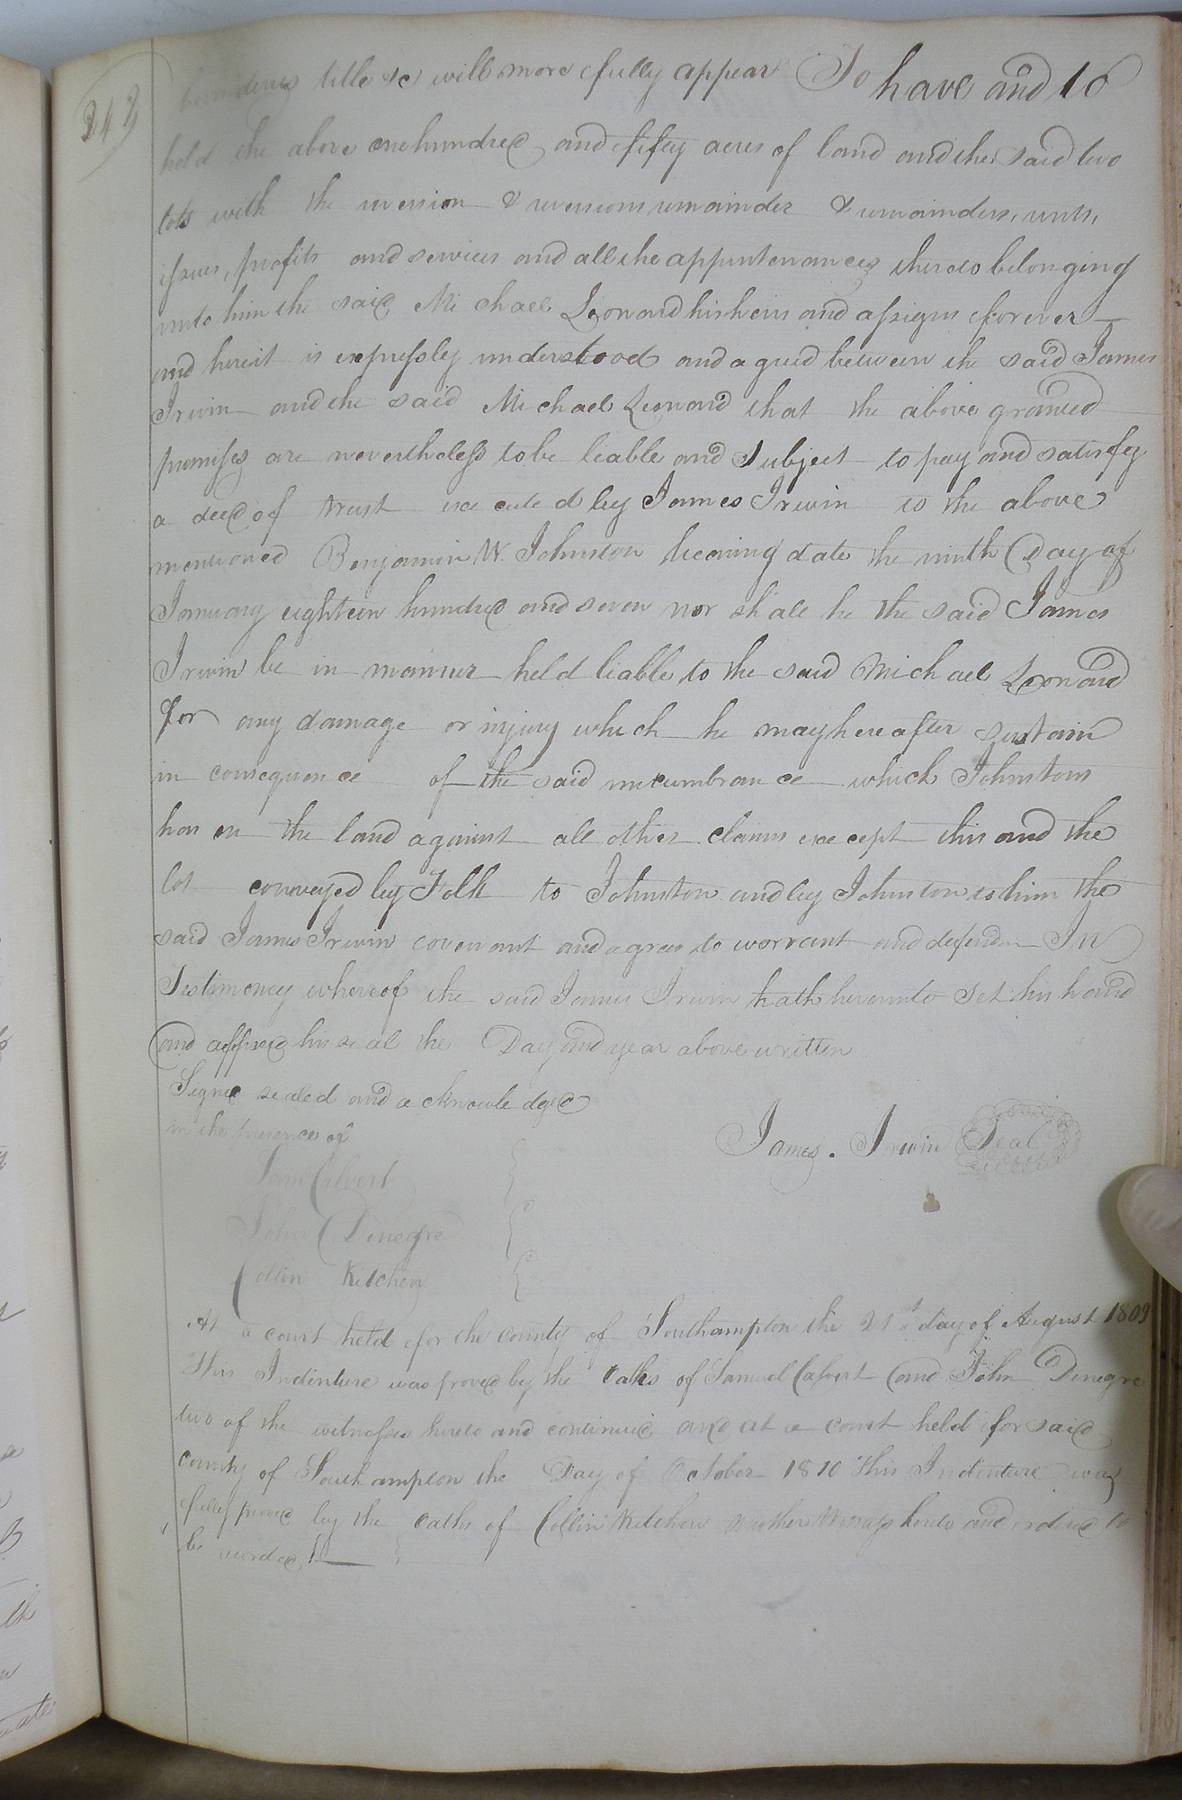 342
boundens title &c will more fully appear To have and to
hold the above one hundred and fifty acres of land and the said two
lots with the reversion & reversions remainder & remainders, rents,
issues, profits and services and all the appurtenances thereto belonging
unto him the said Michael Leonard his heirs and assigns forever
and here it is expressly understood and agreed between the said James
Irwin and the said Michael Leonard that the above granted
premises are nevertheless to be liable and Subject to pay and satisfy
a deed of trust executed by James Irwin to the above
mentioned Benjamin W. Johnston bearing date the ninth Day of
January eighteen hundred and seven nor shall he the said James
Irwin be in manner held liable to the said Michael Leonard
for any damage or injury which he may hereafter sustain
in consequence of the said incumbrance which Johnston
has on the land against all other claims except this and the
lot conveyed by Folk to Johnston and by Johnston to him the
said James Irwin covenant and agrees to warrant and defend In
Testimony whereof the said James Irwin hath hereunto Set his hand
and affixed his seal the Day and year above written
Signed sealed and acknowledged
in the presence of
James. Irwin Seal
Saml Calvert
John Denegre
Collin Kitchen
At a court held for the county of Southampton the 21st day of August 1809
This Indenture was proved by the Oaths of Samuel Calvert and John Denegre
two of the witnesses hereto and continued and at a court held for said
county of Southampton the Day of October 1810 This Indenture was
fully proved by the oaths of Collin Kitchen another Witness hereto and ordered to
be recorded